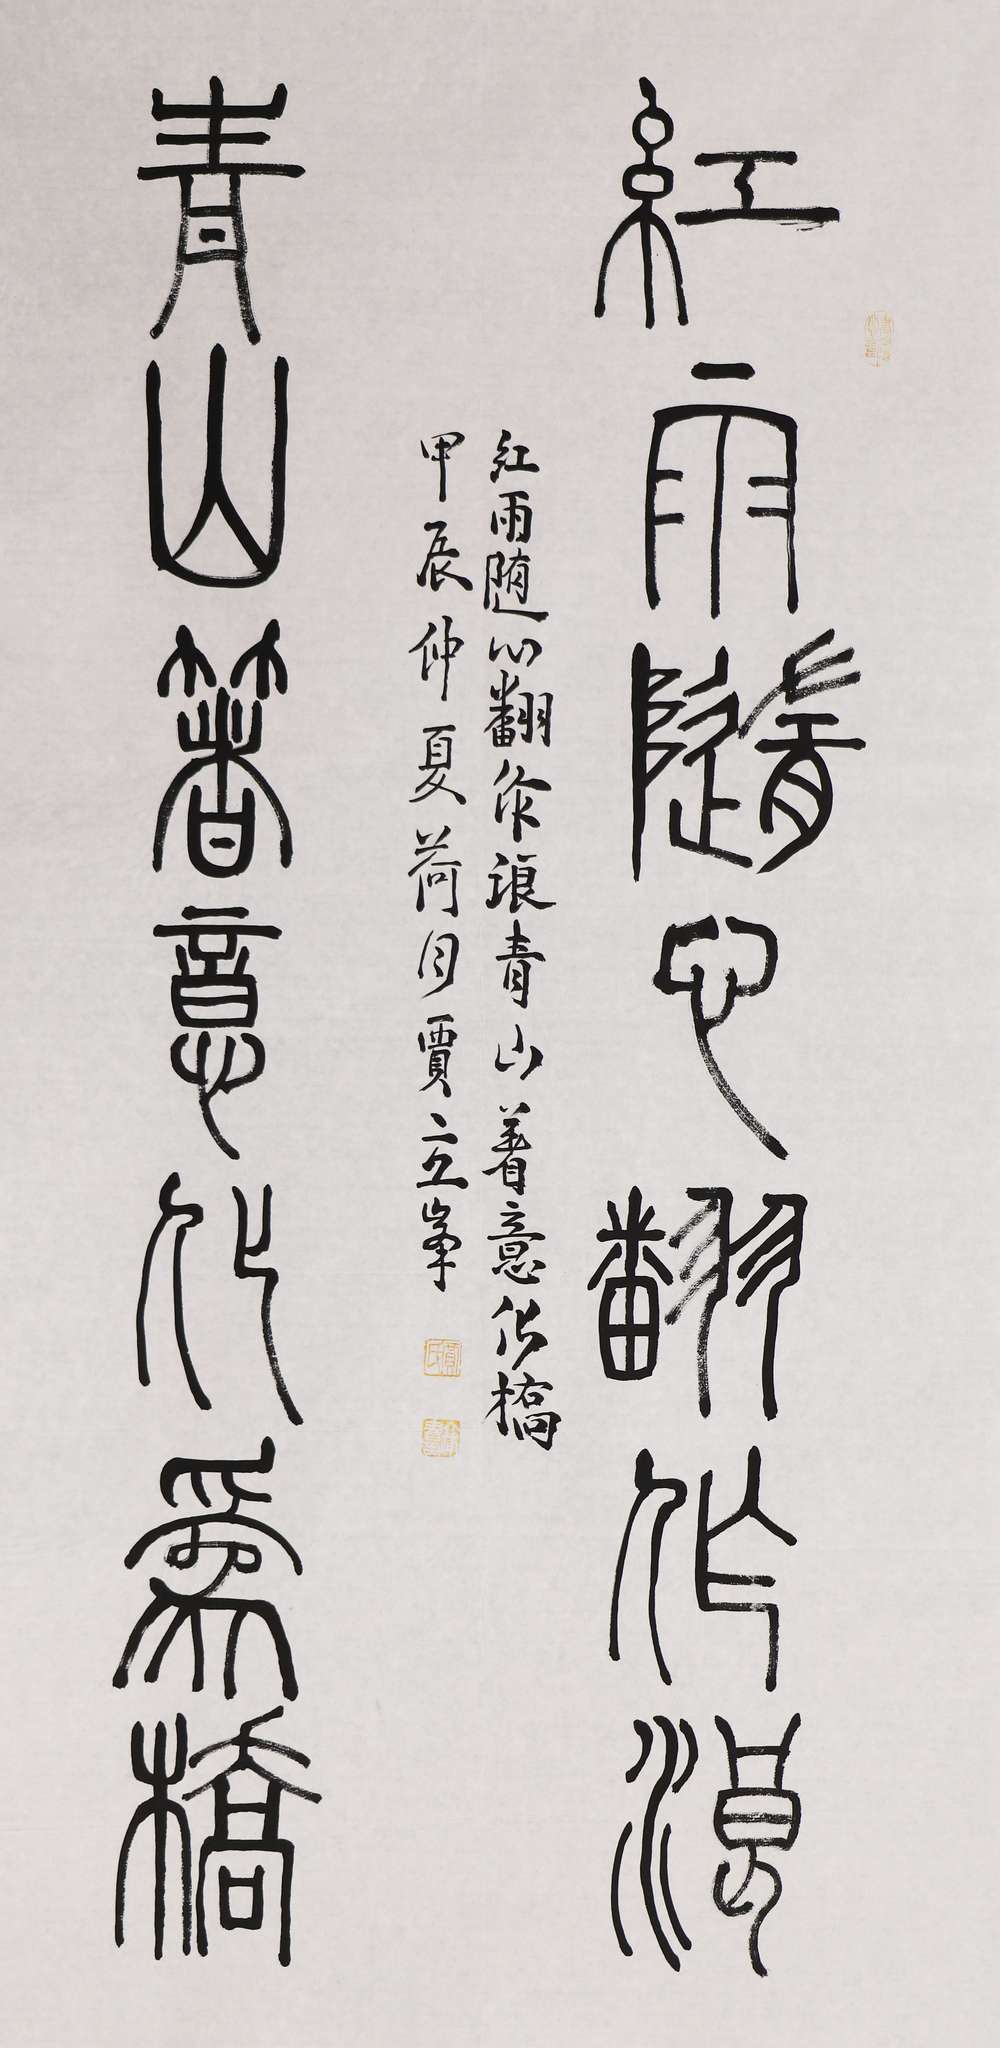 紅雨隨心翻作浪
青山著意化為橋
紅雨随心翻作浪青山着意化橋
甲辰仲夏荷月賈立峯
賈氏